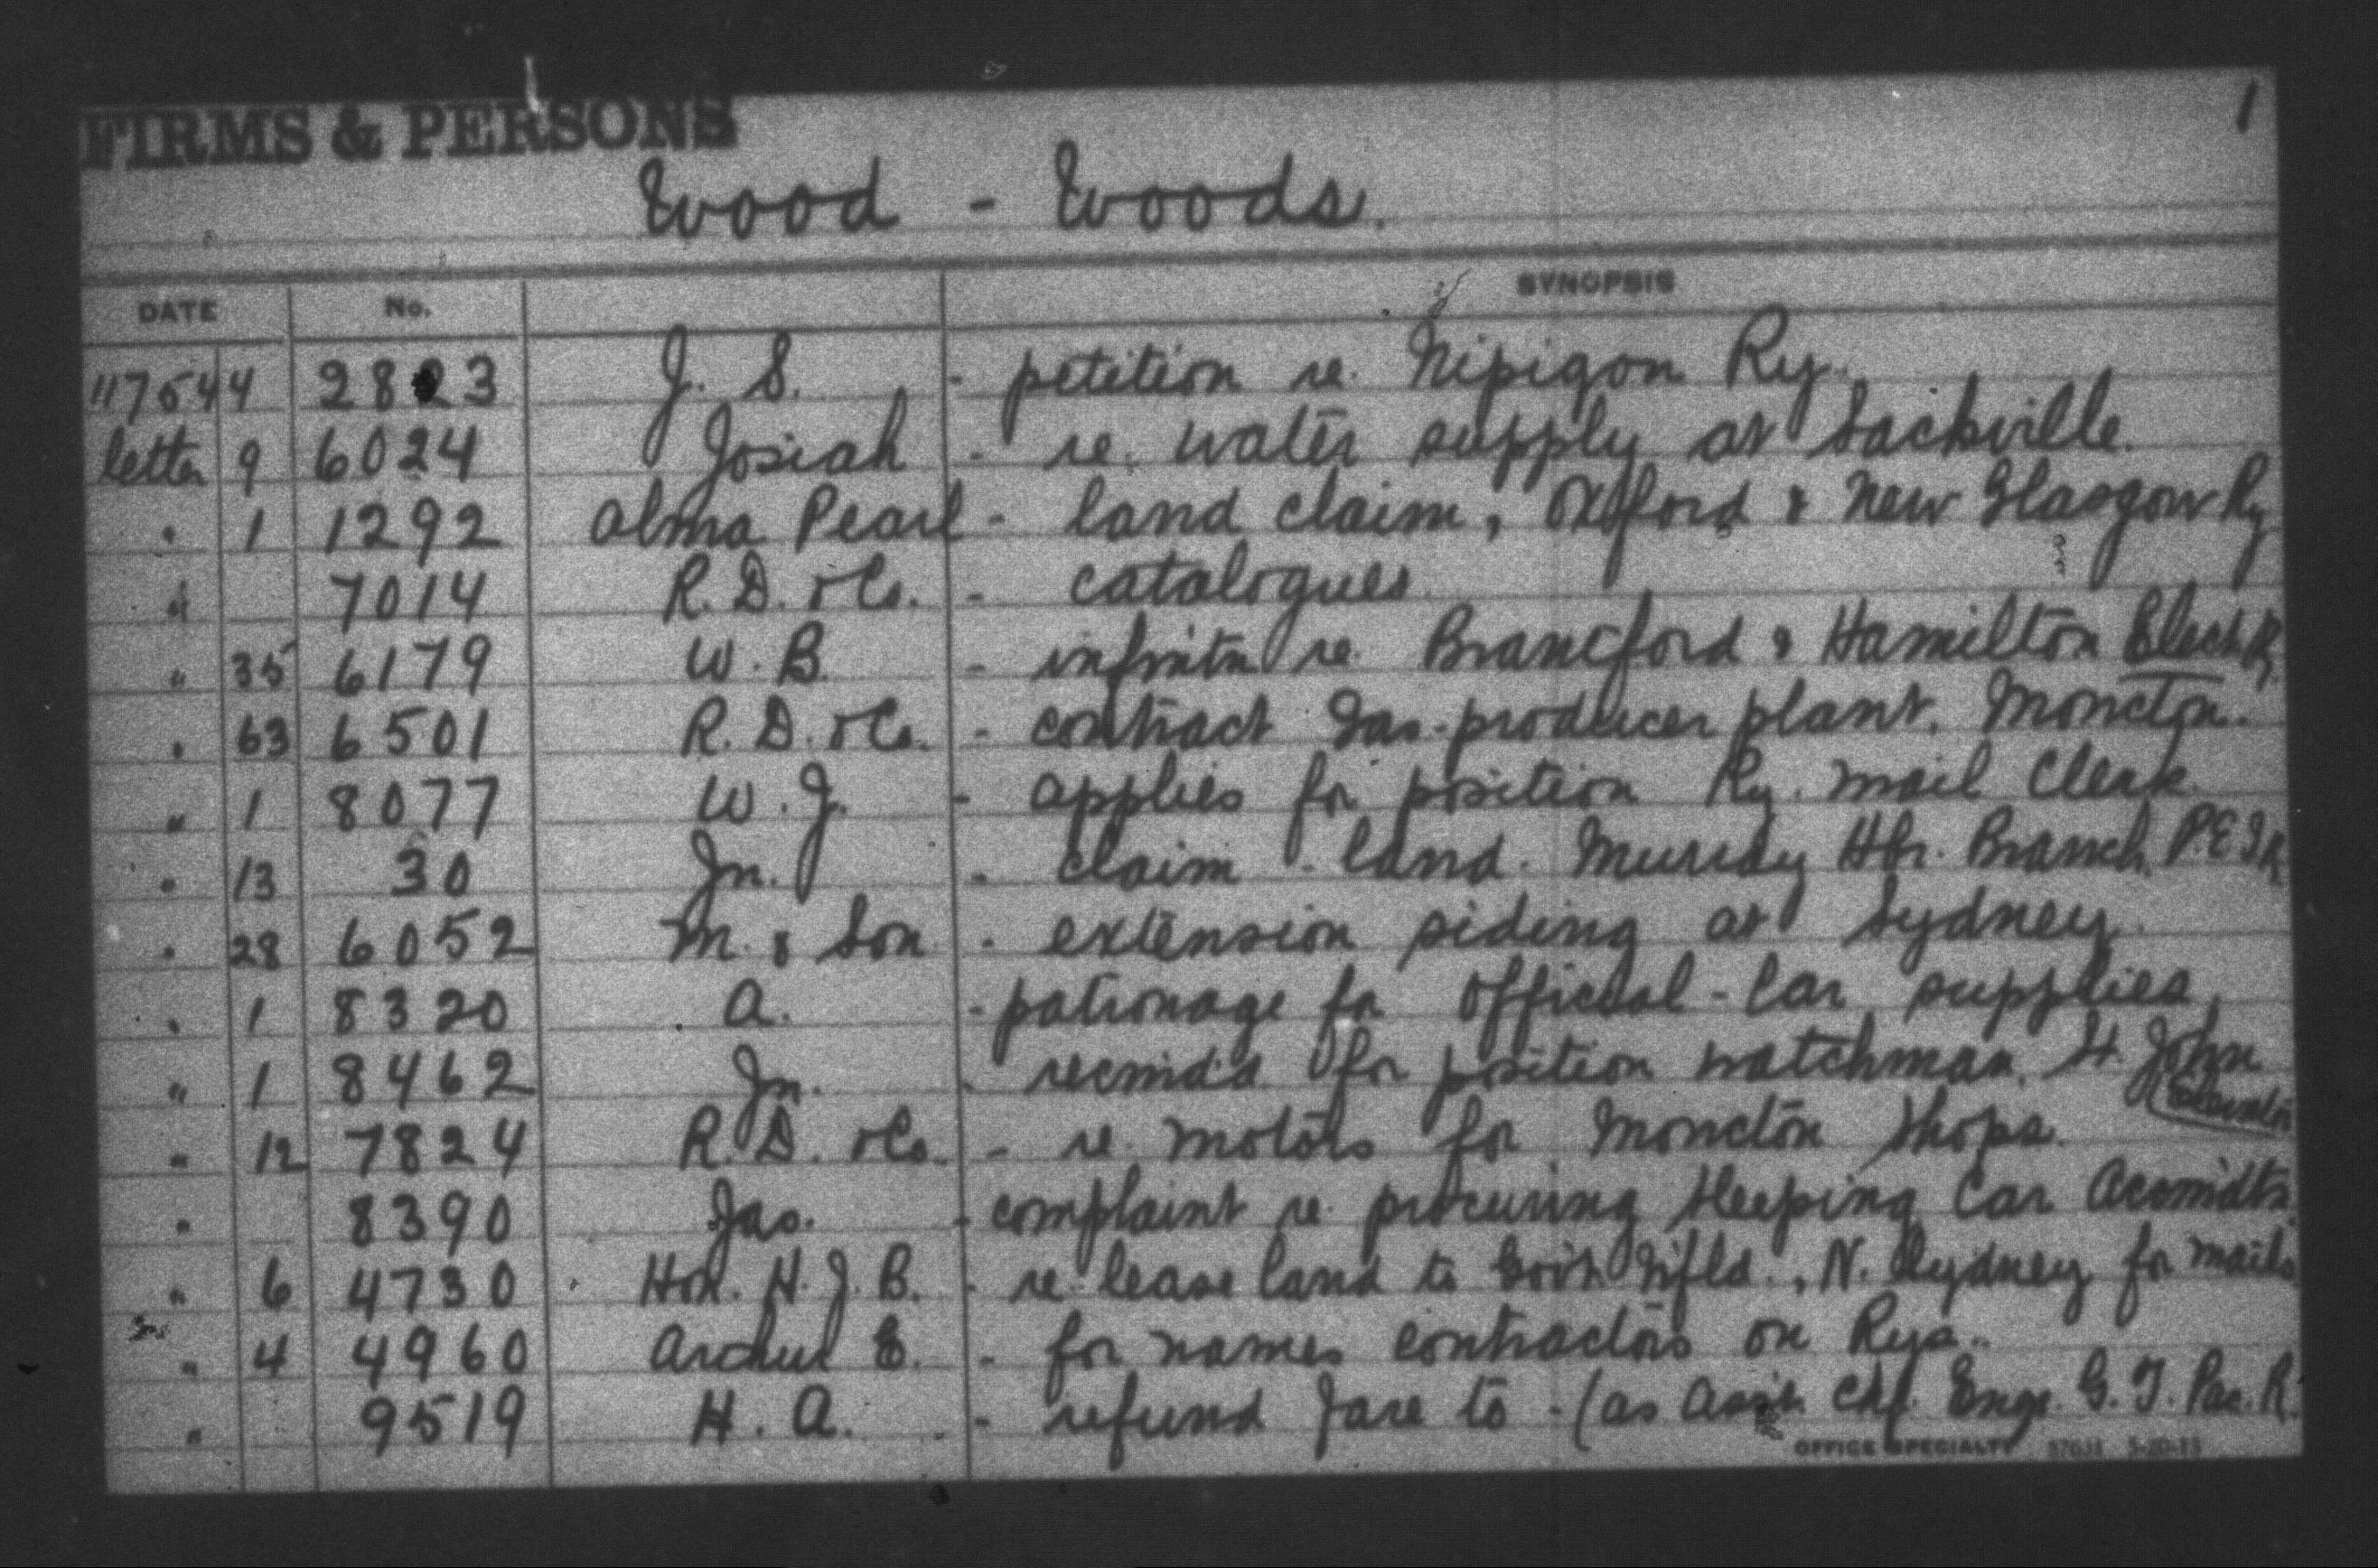 FIRMS & PERSONS 1
Wood - Woods.
DATE No. SYNOPSIS
117544 4 2823 J. S. - petition re. Nipigon Ry.
letter 9 6024 Josiah - re. water supply at Sackville.
" 1 1292 Alma Pearl - land claim, Oxford & New Glasgow Ry
" 7014 R. D. & Co. - catalogues
" 35 6179 W. B. - infmtn re. Brantford & Hamilton Elect. Ry.
" 63 6501 R. D. & Co. - contract Gas-producer plant. Moncton.
" 1 8077 W. J. - applies for position Ry. mail Clerk
" 13 30 Jn. - claim - land. Murray Hbr. Branch. P.E.I.R.
" 28 6052 M. & Son - extension siding at Sydney.
" 1 8320 A. - patronage for Official-Car supplies.
" 1 8462 Jn. - recmd'd for position watchman, St. John Elevator
" 12 7824 R. D. & Co. - re. motors for Moncton Shops.
" 8390 Jas. - complaint re. procuring Sleeping Car Acomidtn.
" 6 4730 Hon. H. J. B. - re lease land to Govt. Nfld., N. Sydney for mails
" 4 4960 Archur E. - for names contractors on Rys.
" 9519 H. A. - refund fare to - (as Assit. Chf. Engr. G. T. Pac. R.
OFFICE SPECIALTY 5-20-13